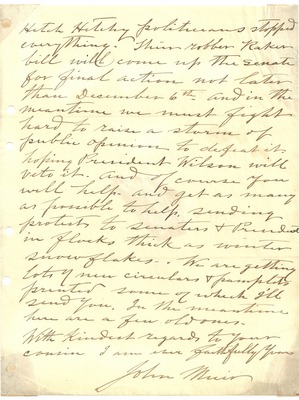 Hetch Hetchy politicians stopped
everything. Their robber Raker
bill will come up the senate
for final action not later
than December 6th and in the
meantime we must fight
hard to raise a storm of
public opinion to defeat it
hoping President Wilson will
veto it. And of course you
will help and get as many
as possible to help, sending
protests to senators & President
in flocks thick as winter
snowflakes. We are getting
lots of new circulars & pamphlets
printed some of which I'll
send you. In the meantime
here are a few old ones.
With kindest regards to your
cousin I am ever faithfully yours
John Muir